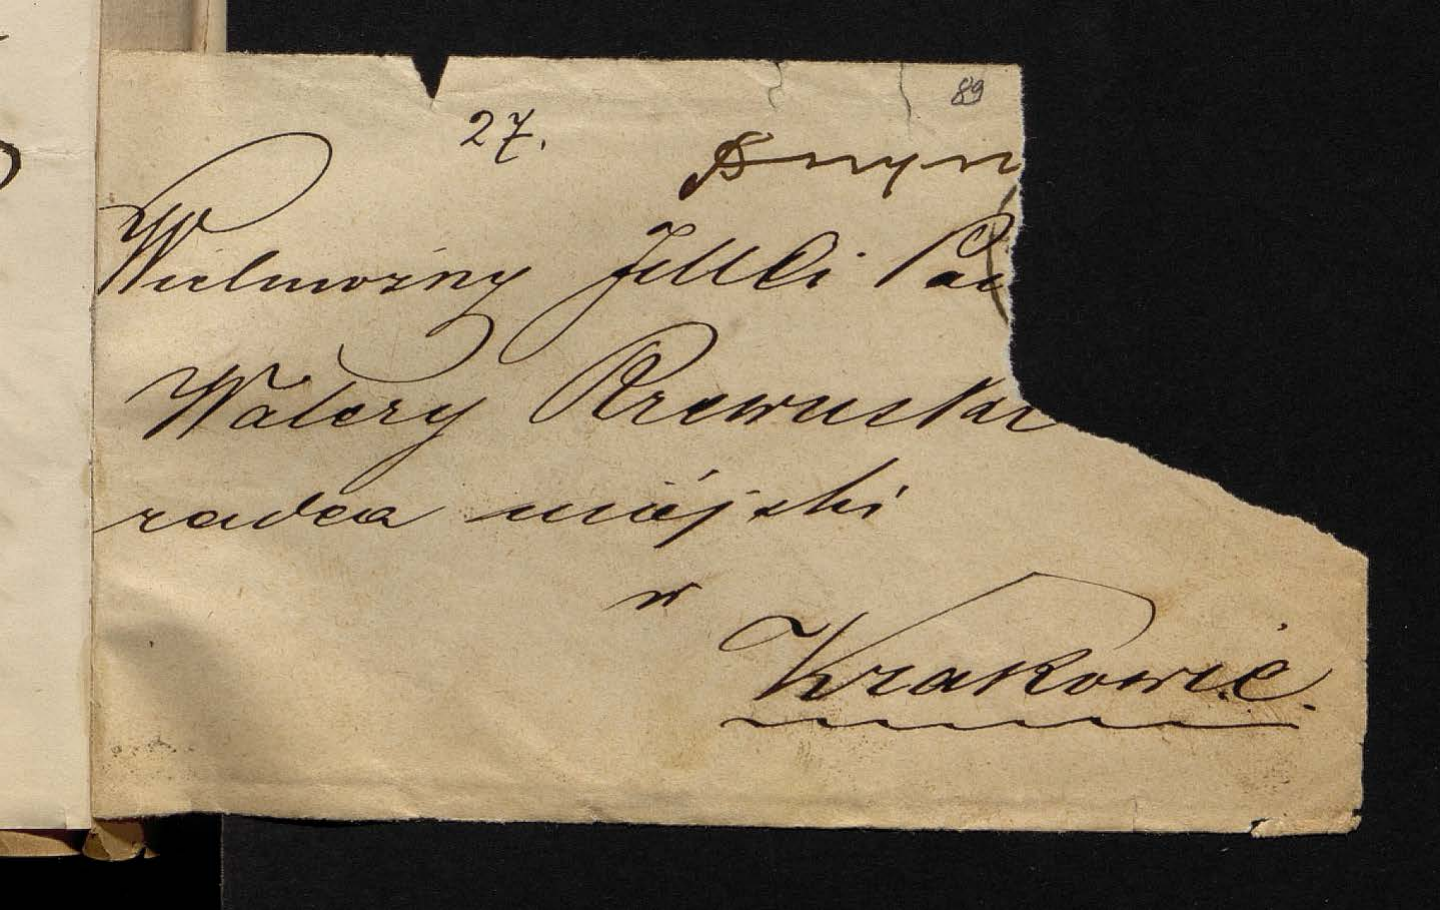 89
27.
Wielmożny JMCi Pa
Walery Rzewuski
radca miéjski
w
Krakowie.